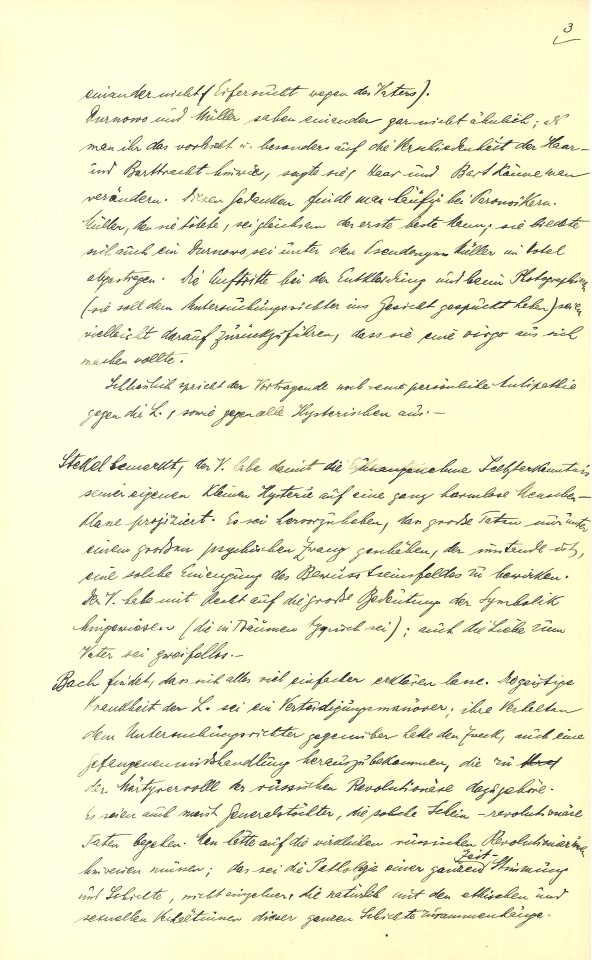 3
einander nicht (Eifersucht wegen des Vaters).
Durnowo und Müller sahen einander gar nicht ähnlich; als
man ihr das vorhielt u. besonders auf die Verschiedenheit der Haar-
und Barttracht hinwies, sagte sie, Haar und Bart könne man
verändern. Diesen Gedanken finde man häufig bei Paranoikern.
Müller, den sie tötete, sei gleichsam der erste beste Mann; sie bildete
sich auch ein Durnowo sei unter dem Pseudonym Müller im Hotel
abgestiegen. Die Auftritte bei der Entkleidung und beim Photographieren
(sie soll dem Untersuchungsrichter ins Gesicht gespuckt haben) seien
vielleicht darauf zurückzuführen, dass sie eine virgo aus sich
machen wollte.
Schliesslich spricht der Vortragende noch eine persönliche Antipathie
gegen die L., sowie gegen alle Hysterischen aus.-
Stekel bemerkt, der V. habe damit die unangenehme Selbsterkenntnis
seiner eigenen kleinen Hysterie auf eine ganz harmlose Menschen-
klasse projiziert. Es sei hervorzuheben, das große Taten nur unter
einem großen psychischen Zwang geschähen, der imstande ist,
eine solche Einengung des Bewusstseinsfeldes zu bewirken.
Der V. habe mit Recht auf die große Bedeutung der Symbolik
hingewiesen (die in Träumen typisch sei); auch die Liebe zum
Vater sei zweifellos.-
Bach findet, dass sich alles viel einfacher erklären lasse. Die geistige
Krankheit der L. sei ein Verteidigungsmanöver; ihr Verhalten
dem Untersuchungsrichter gegenüber habe den Zweck, auch eine
Gefangenenmisshandlung herauszubekommen, die zu
der Märtyrerrolle der russischen Revolutionäre dazugehöre.
Es seien auch meist Generalstöchter, die solche Schein-revolutionäre
Taten begehen. Man hätte auf die wirklichen russischen Revolutionärinnen
hinweisen müssen; das sei die Pathologie einer ganzen Zeit-Stimmung
und Schichte, nicht einzelner, die natürlich mit den ethischen und
sexuellen Verhältnissen dieser ganzen Schichte zusammenhänge.